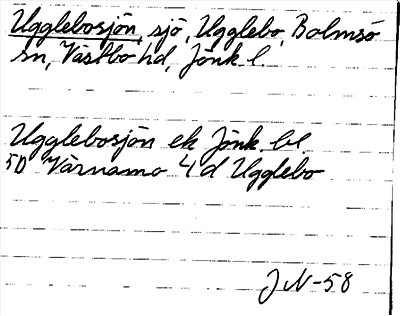 Ugglebosjön, sjö, Ugglebo, Bolmsö
sn, Västbo hd, Jönk. l
Ugglebosjön ek Jönk. bl.
5D Värnamo 4d Ugglebo
JN-58